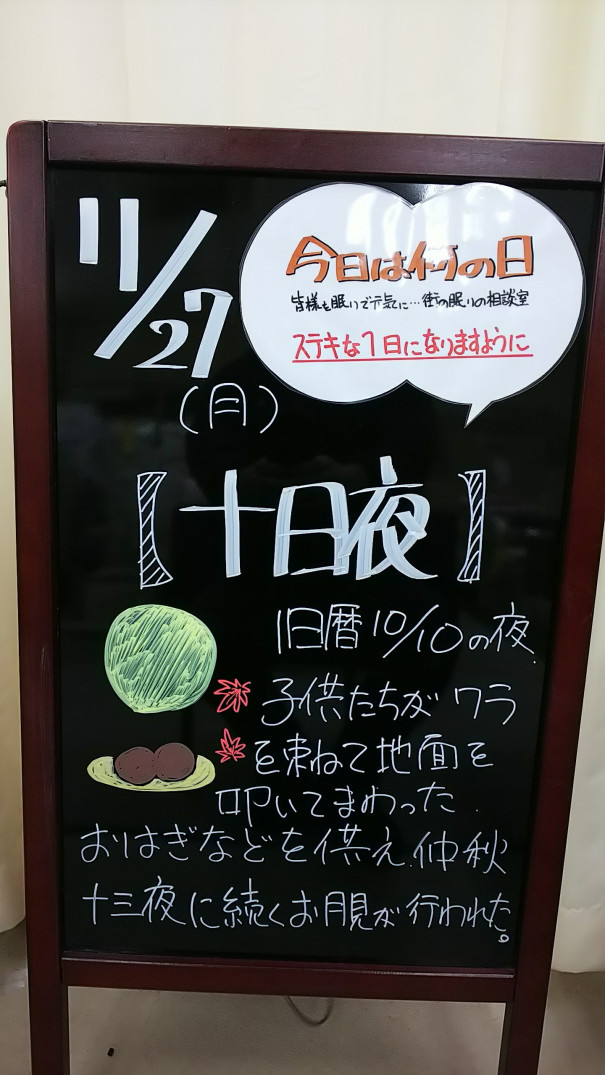 11/27
(月)
今日は何の日
皆様を眠りで元気に…街の眠りの相談室
ステキな1日になりますように
【十日夜】
旧暦10/10の夜.
子供たちが ワラ
を束ねて地面を
叩いてまわった.
おはぎなどを供え.仲秋
十三夜に続くお月見が行われた。